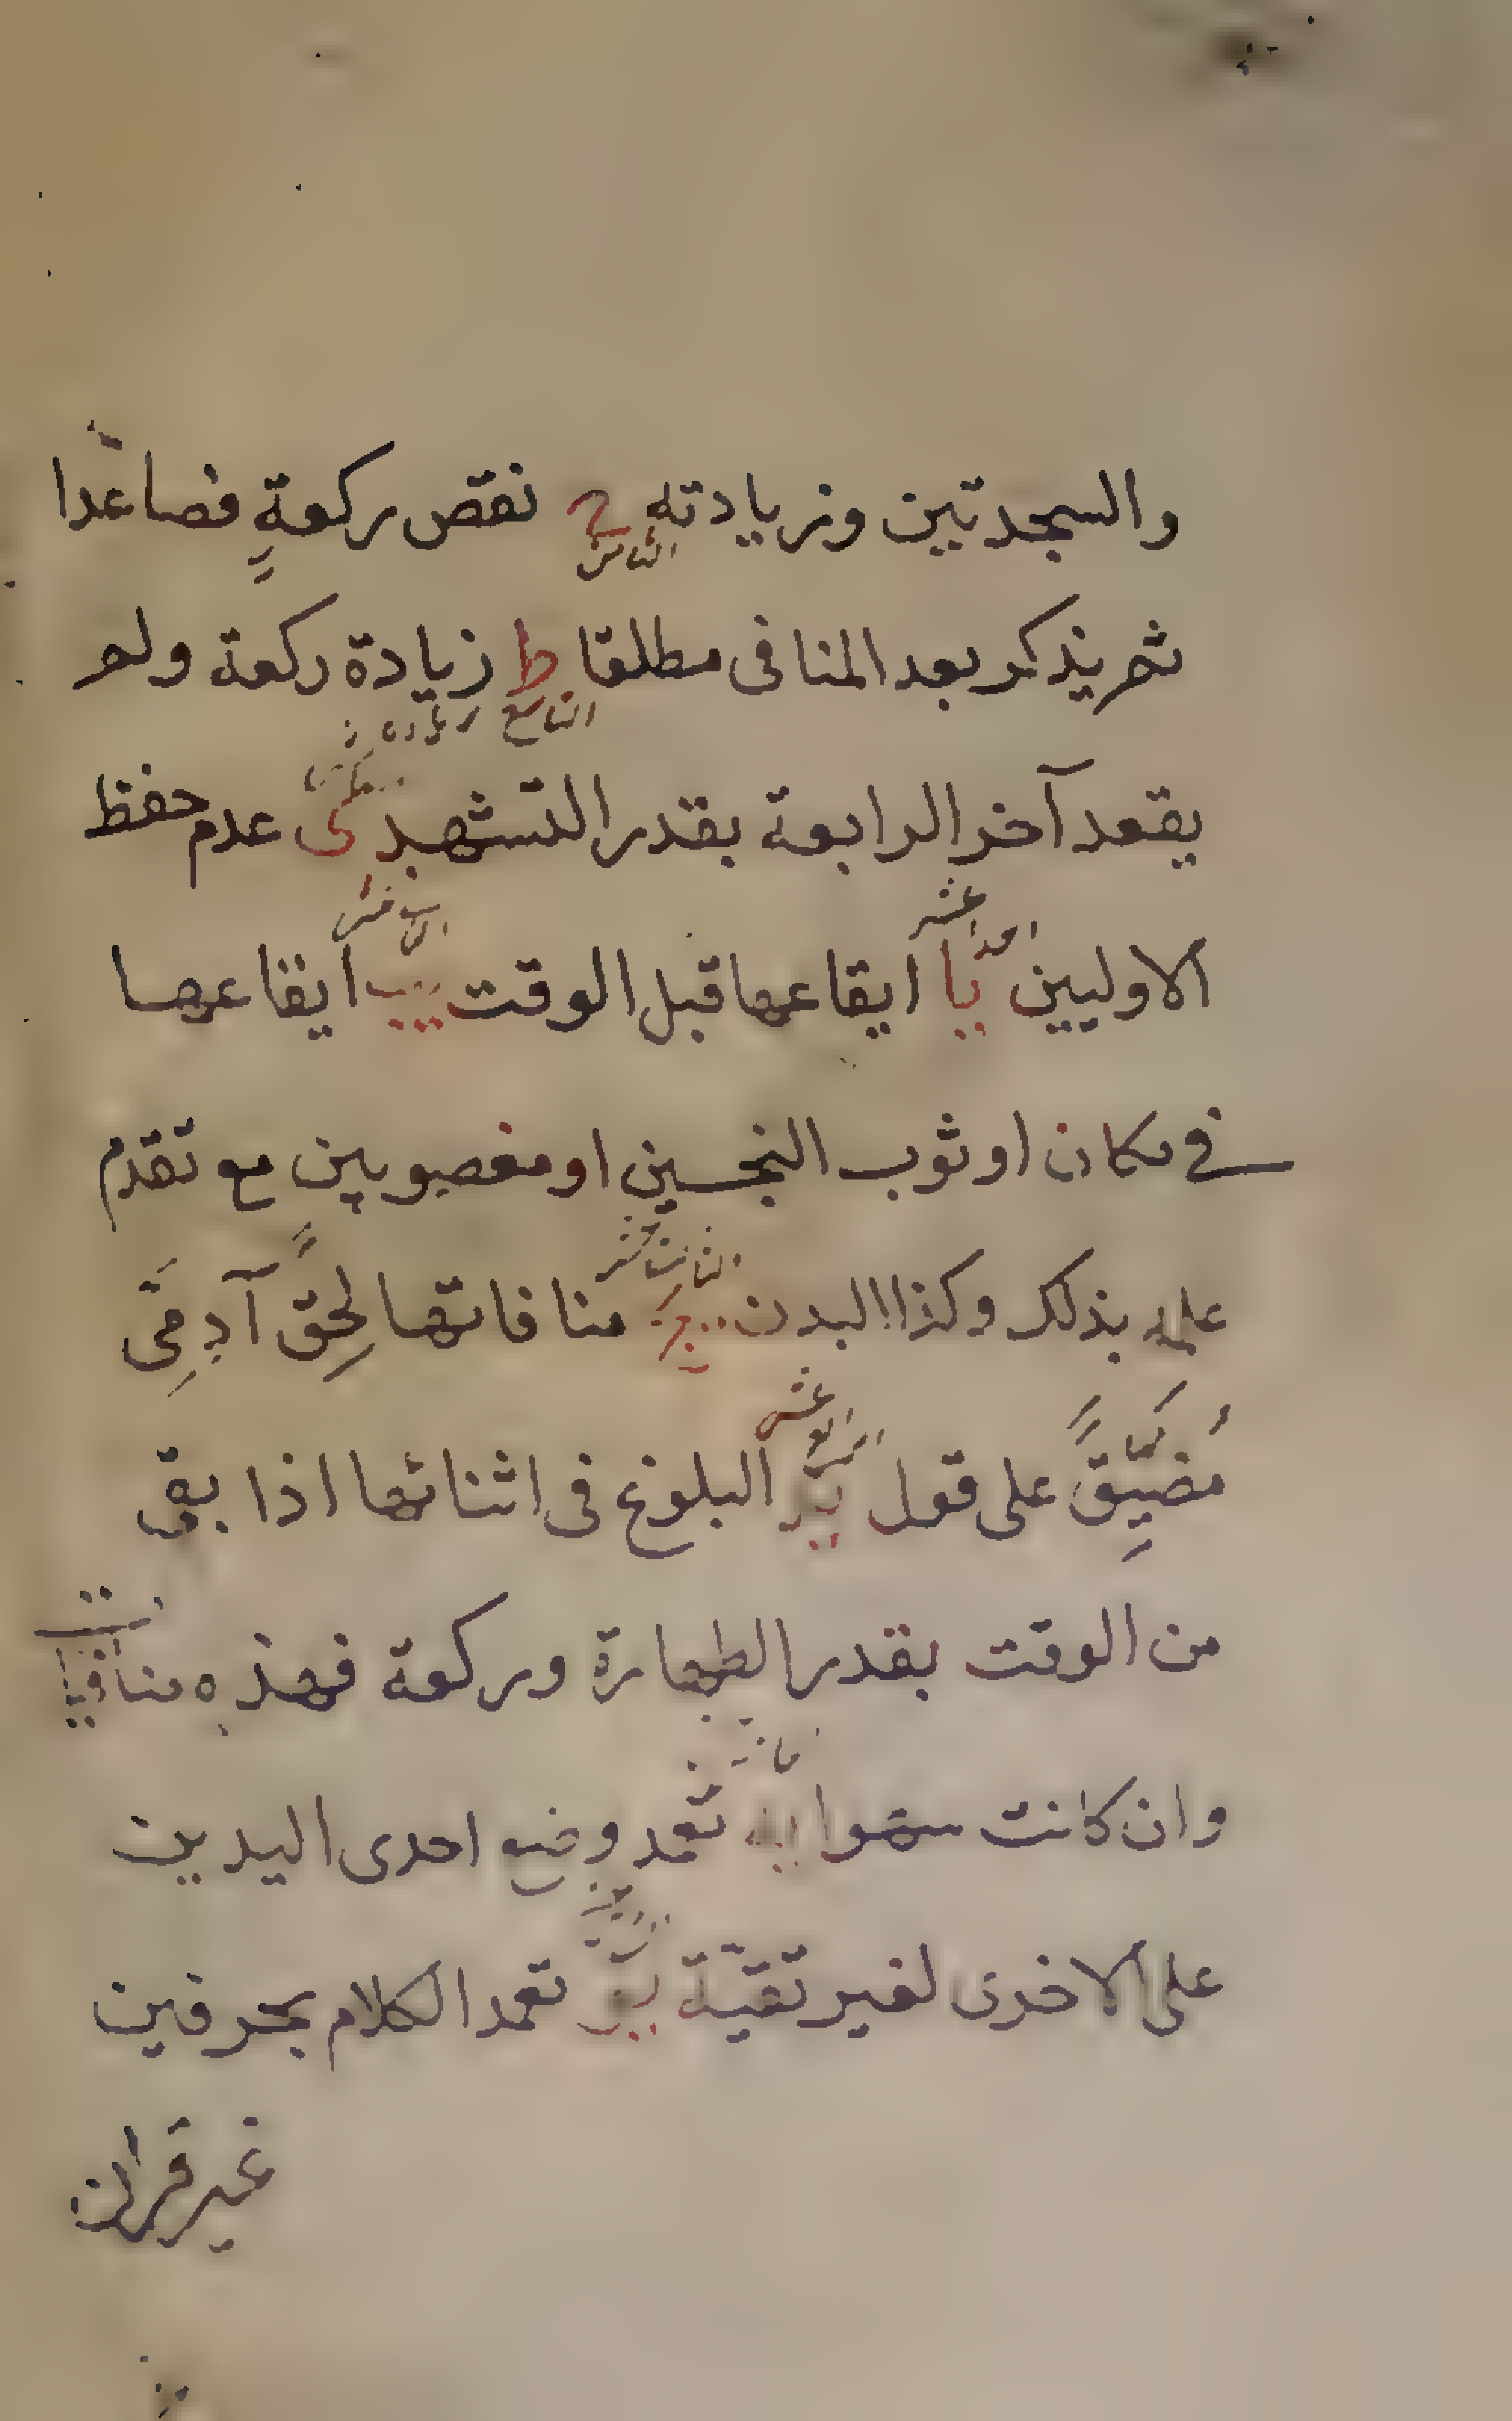 والسجدتين وزيادته ح نقص ركعةٍ فصاعدا
الثامن
ثم يذكر بعد المنافى مطلقا ط زيادة ركعة ولم
التاسع
يقعد آخر الرابعة بقدر التشهد ى عدم حفظ
عشر
الاوليين يا ايقاعها قبل الوقت يب ايقاعها
فى مكان او ثوب النجسين او مغصوبين مع تقدم
علمه بذلك وكذا البدن يج منافاتها لحِقّ آدمِىَ
عشر
مُضَيِّقٍّ على قول يد البلوغ فى اثنائها اذا بقى
من الوقت بقدر الطهارة وركعة فهذه منافيات
وان كانت سهوا يه تعمد وضع احدى اليدين
على الاخرى لغير تقيّة يو تعمد الكلام بحرفين
غير قران